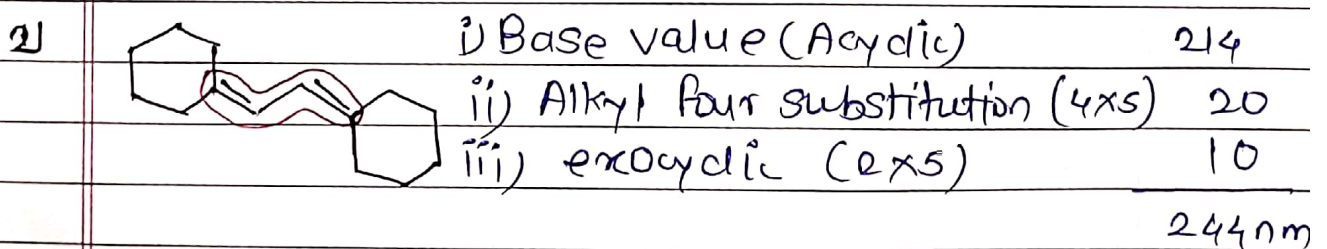 2)
i) Base value (Acyclic) 214
ii) Alkyl four substitution (4x5) 20
iii) exocyclic (2x5) 10
244nm